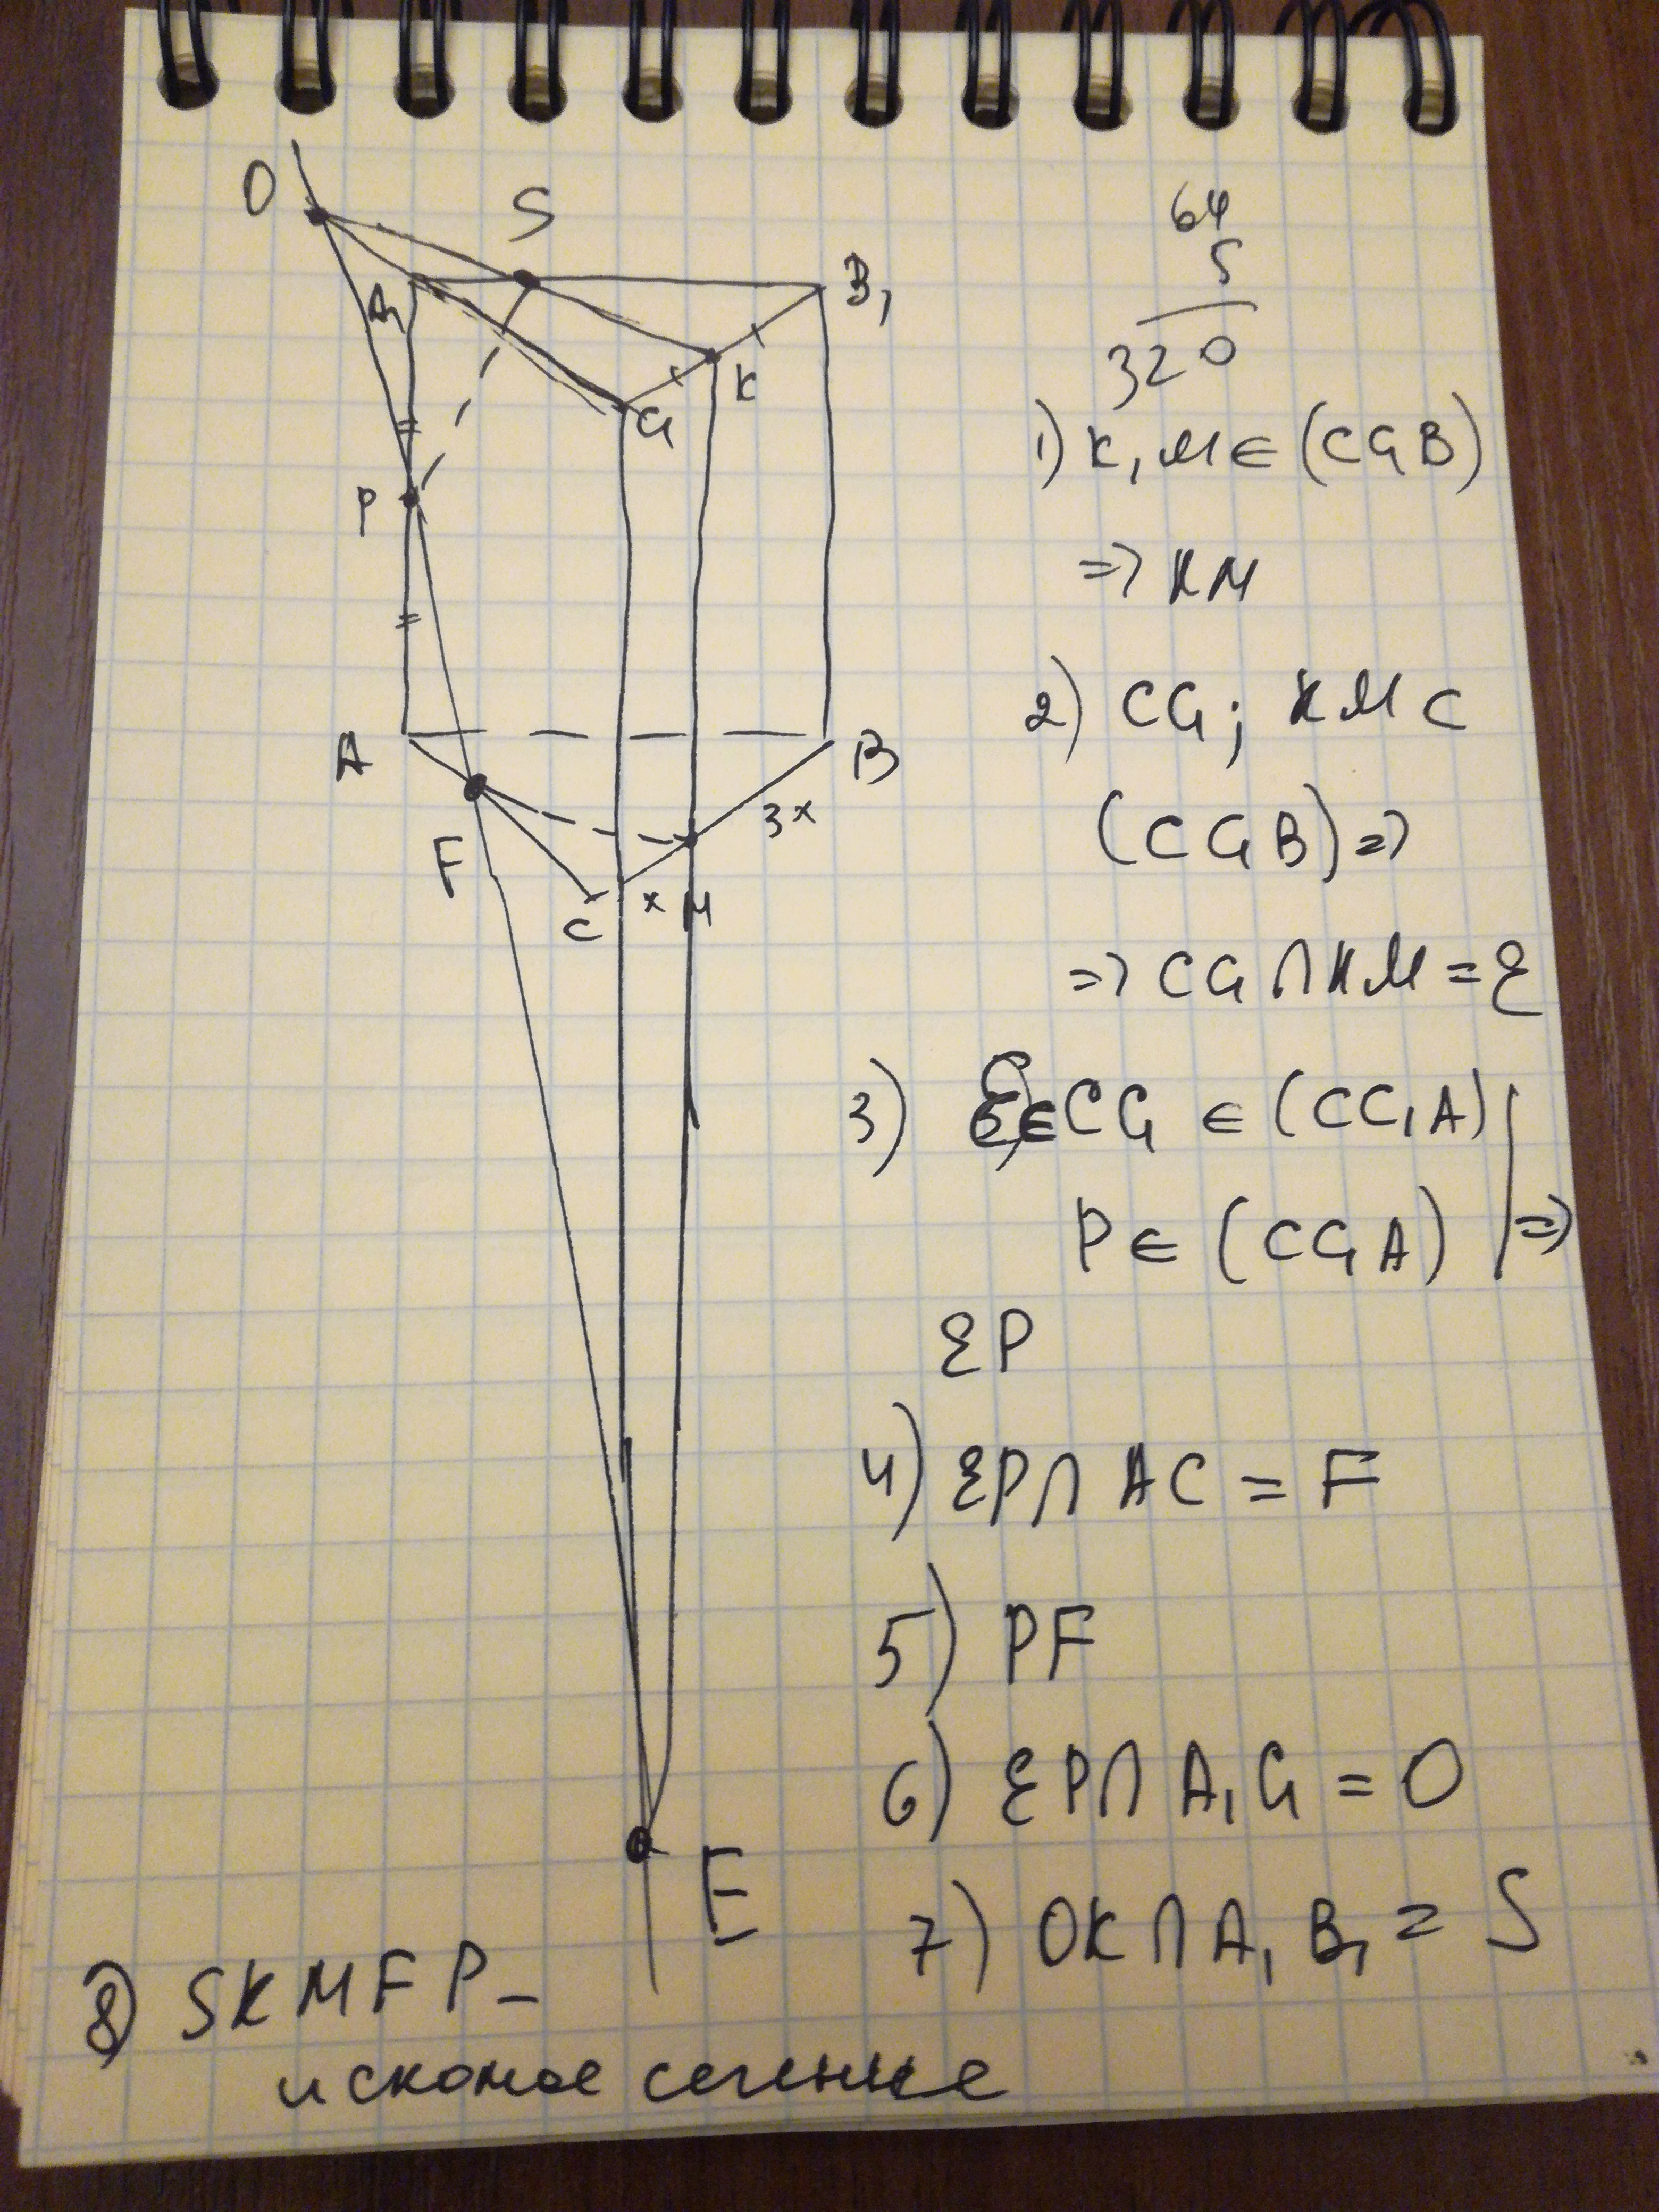 O
S
A₁
B₁
K
C₁
P
A
B
3x
F
C
x
M
E
64
5
320
1) K, M ∈ (CC₁B)
=> KM
2) CC₁; KM ⊂
(CC₁B) =>
=> CC₁ ∩ KM = E
3) E ∈ CC₁ ∈ (CC₁A)
P ∈ (CC₁A) | =>
EP
4) EP ∩ AC = F
5) PF
6) EP ∩ A₁C₁ = O
7) OK ∩ A₁B₁ = S
8) SKMFP –
искомое сечение